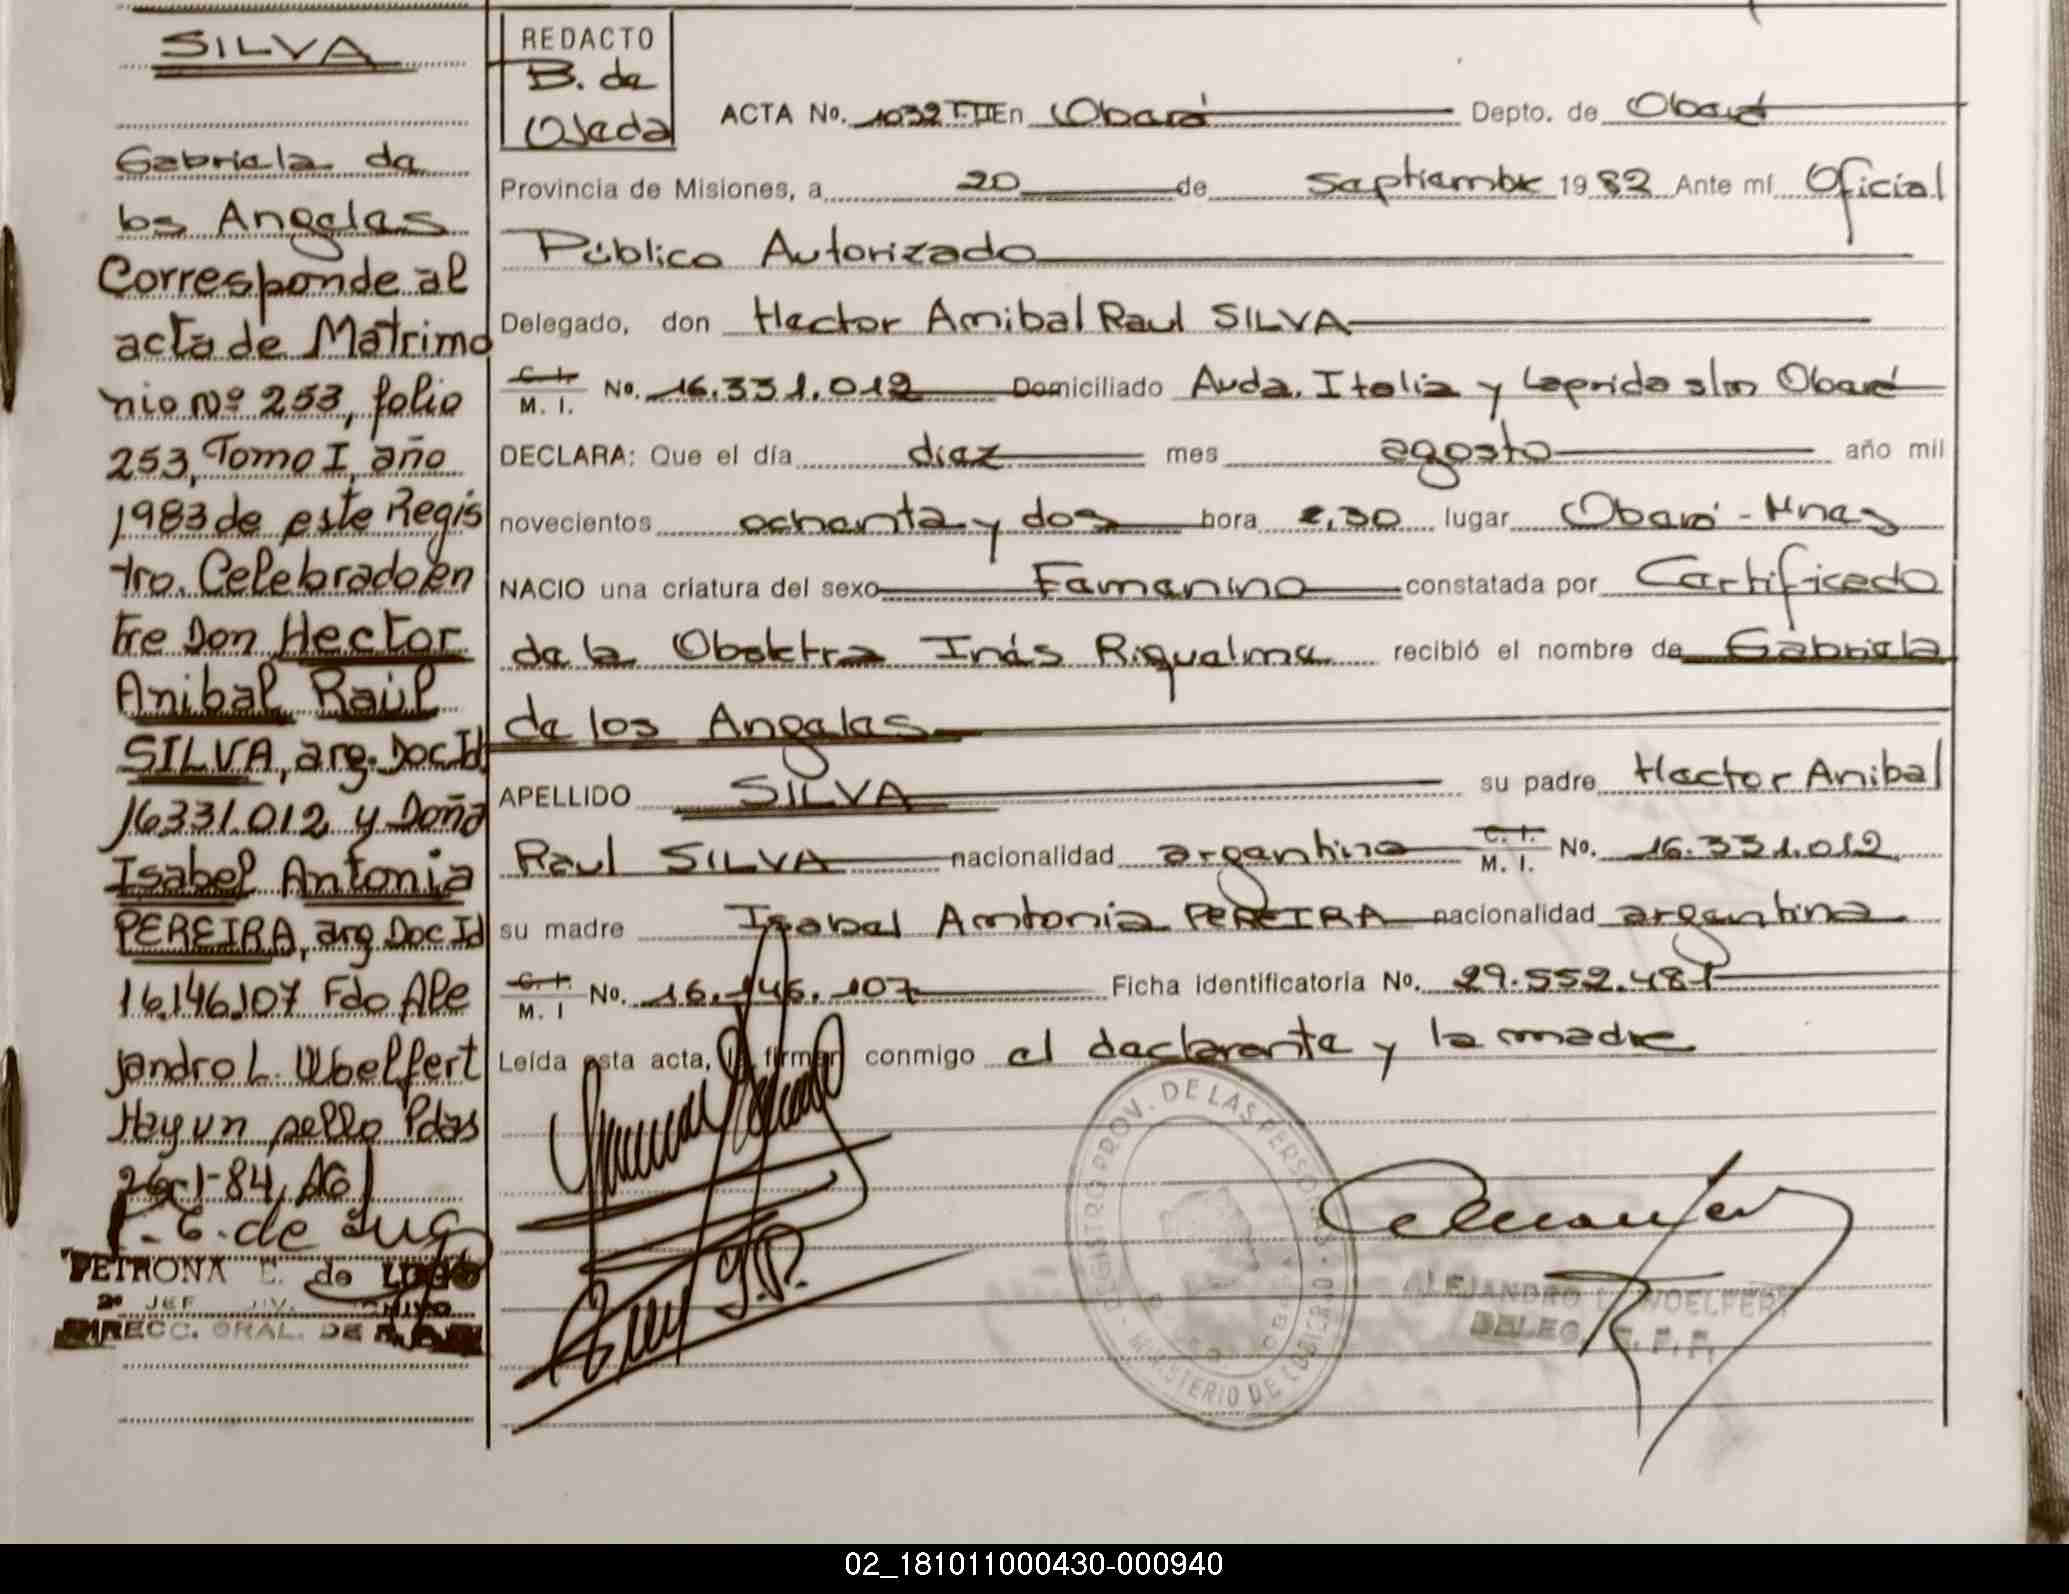 SILVA
Gabriela de
los Angeles
Corresponde al
acta de Matrimo
nio Nº 253, folio
253, Tomo I, año
1983 de este Regis
tro. Celebrado en
tre Don Hector
Anibal Raúl
SILVA, arg. Doc Id
16331.012 y Doña
Isabel Antonia
PEREIRA, arg Doc Id
16.146.107 Fdo Ale
jandro L. Woelfert
Hay un sello Pdas
26-1-84,
de Lug
PETRONA E. de LUGO
DIRECC. GRAL. DE
REDACTO
B. de
Ojeda
ACTA No. 1032 T-III En Oberá Depto. de Oberá
Provincia de Misiones, a 20 de septiembre 1982 Ante mí Oficial
Público Autorizado
Delegado, don Hector Anibal Raul SILVA
C. I.
M. I. No. 16.331.012 Domiciliado Avda. Italia y Laprida s/n Oberá
DECLARA: Que el día diez mes agosto año mil
novecientos ochenta y dos hora 2,30 lugar Oberá - Mnes
NACIO una criatura del sexo Femenino constatada por Certificado
de la Obstetra Inés Riquelme recibió el nombre de Gabriela
de los Angeles
APELLIDO SILVA su padre Hector Anibal
Raul SILVA nacionalidad argentina C. I. M. I. No. 16.331.012
su madre Isabel Antonia PEREIRA nacionalidad argentina
C. I.
M. I No. 16.146.107 Ficha identificatoria No. 29.552.481
Leída esta acta, la firman conmigo el declarante y la madre
REGISTRO PROV. DE LAS PERSONAS
MINISTERIO DE GOBIERNO
ALEJANDRO L. WOELFERT
DELEG.
02_181011000430-000940